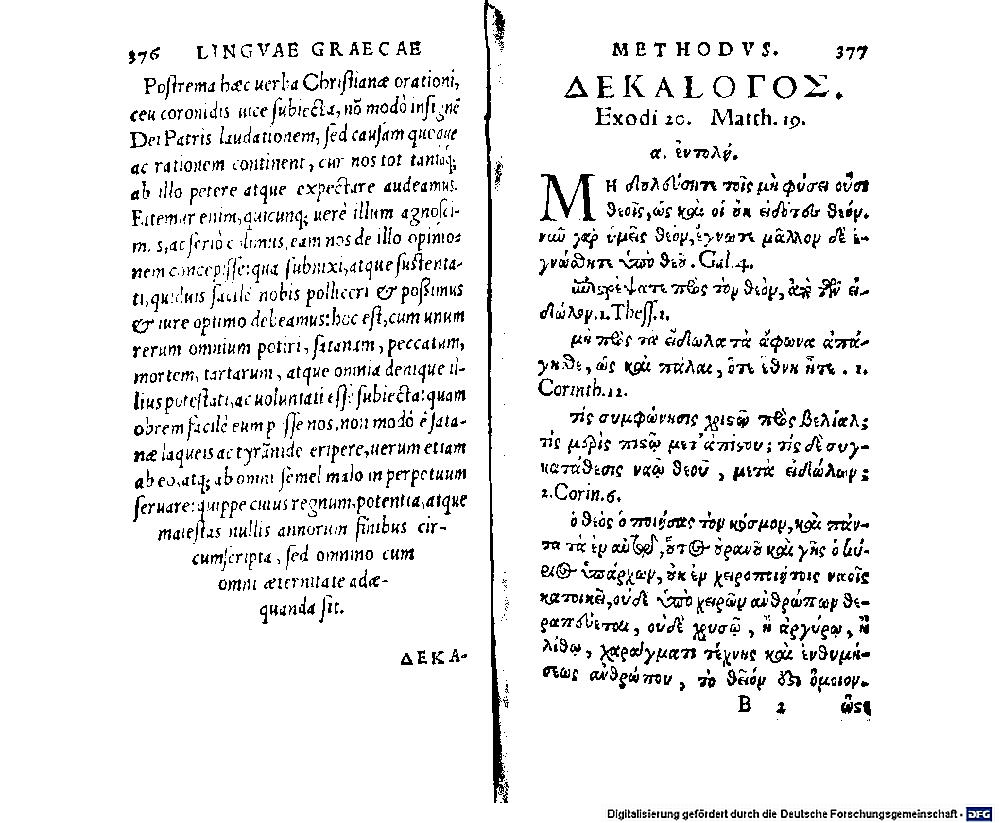 376 LINGVAE GRAECAE
Postrema hæc uerba Christianæ orationi,
ceu coronidis uice subiecta, nõ modò insignē
Dei Patris laudationem, sed causam quoque
ac rationem continent, cur nos tot tantáq;
ab illo petere atque expectare audeamus.
Fatemur enim, quicunq; uerè illum agnosci-
m. s, ac seriò colimus, eam nos de illo opinio=
nem concepisse: qua subnixi, atque sustenta-
ti, quiduis facilè nobis polliceri & possimus
& iure optimo debeamus: hoc est, cum unum
rerum omnium potiri, satanam, peccatum,
mortem, tartarum, atque omnia denique il-
lius potestati, ac uoluntati esse subiecta: quam
obrem facilè eum posse nos, non modò è sata-
næ laqueis ac tyrãnide eripere, uerum etiam
ab eo, atq; ab omni semel malo in perpetuum
seruare: quippe cuius regnum, potentia, atque
maiestas nullis annorum finibus cir-
cumscripta, sed omnino cum
omni æternitate adæ-
quanda sit.
ΔΕΚΑ-
METHODVS. 377
ΔΕΚΑΛΟΓΟΣ.
Exodi 20. Matth. 19.
α. ἐντολή.
ΜΗ δουλεύσητε τοῖς μὴ φύσει οὖσι
θεοῖς, ὡς καὶ οἱ οὐκ εἰδότες θεόν.
νῦν γὰρ ὑμεῖς θεόν, ἔγνωτε μᾶλλον δὲ ἐ-
γνώσθητε ὑπὸ θεοῦ. Gal. 4.
ἐπιστρέψατε πρὸς τὸν θεόν, ἀπὸ τῶν εἰ-
δώλων. 1. Thess. 1.
μὴ πρὸς τὰ εἴδωλα τὰ ἄφωνα ἀπά-
γησθε, ὡς καὶ πάλαι, ὅτε ἔθνη ἦτε. 1.
Corinth. 12.
τίς συμφώνησις χριστῷ πρὸς βελίαλ;
τίς μερὶς πιστῷ μετ' ἀπίστου; τίς δὲ συγ-
κατάθεσις ναῷ θεοῦ, μετὰ εἰδώλων;
2. Corin. 6.
ὁ θεὸς ὁ ποιήσας τὸν κόσμον, καὶ πάν-
τα τὰ ἐν αὐτῷ, οὗτος οὐρανοῦ καὶ γῆς ὁ κύ-
ριος ὑπάρχων, οὐκ ἐν χειροποιήτοις ναοῖς
κατοικεῖ, οὐδὲ ὑπὸ χειρῶν ἀνθρώπων θε-
ραπεύεται, οὐδὲ χρυσῷ, ἢ ἀργύρῳ, ἢ
λίθῳ, χαράγματι τέχνης καὶ ἐνθυμή-
σεως ἀνθρώπου, τὸ θεῖόν ἐστι ὅμοιον.
B 2 ὥστ
Digitalisierung gefördert durch die Deutsche Forschungsgemeinschaft - DFG